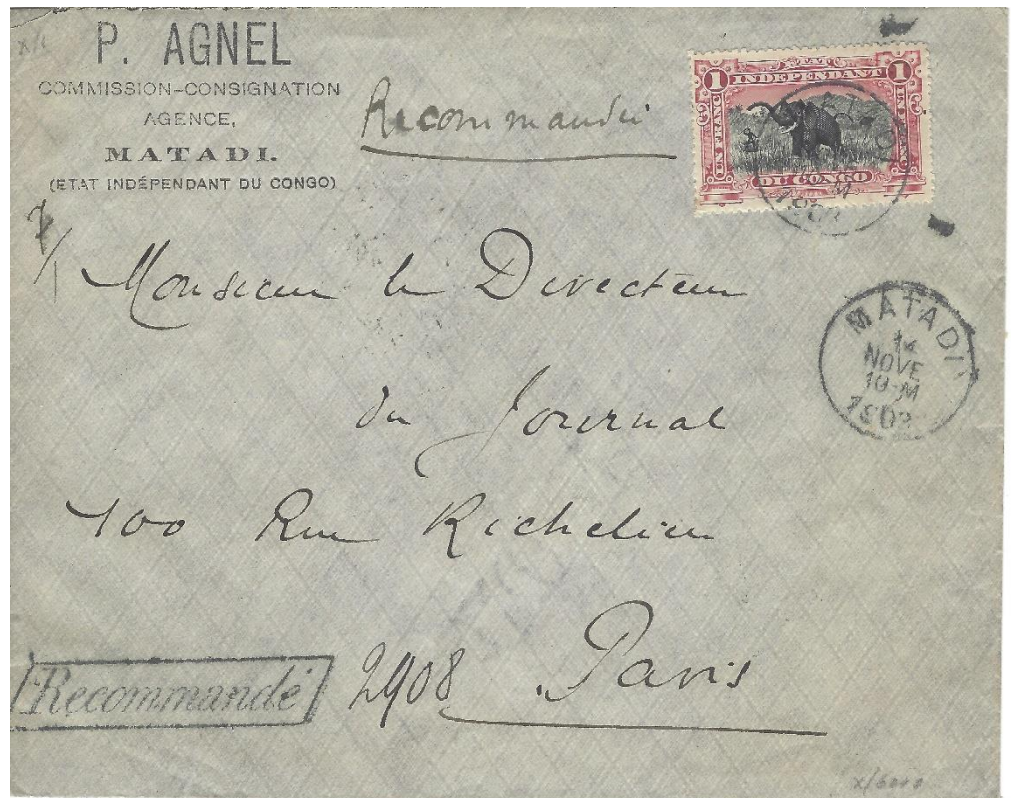 P. AGNEL
COMMISSION-CONSIGNATION
AGENCE,
MATADI.
(ETAT INDÉPENDANT DU CONGO)
Recommandée
1 ETAT INDEPENDANT 1
UN FRANC
DU CONGO
Monsieur le Directeur
du Journal
100 Rue Richelieu
Paris
MATADI
14
NOVE
10-M
190
Recommandé
2908